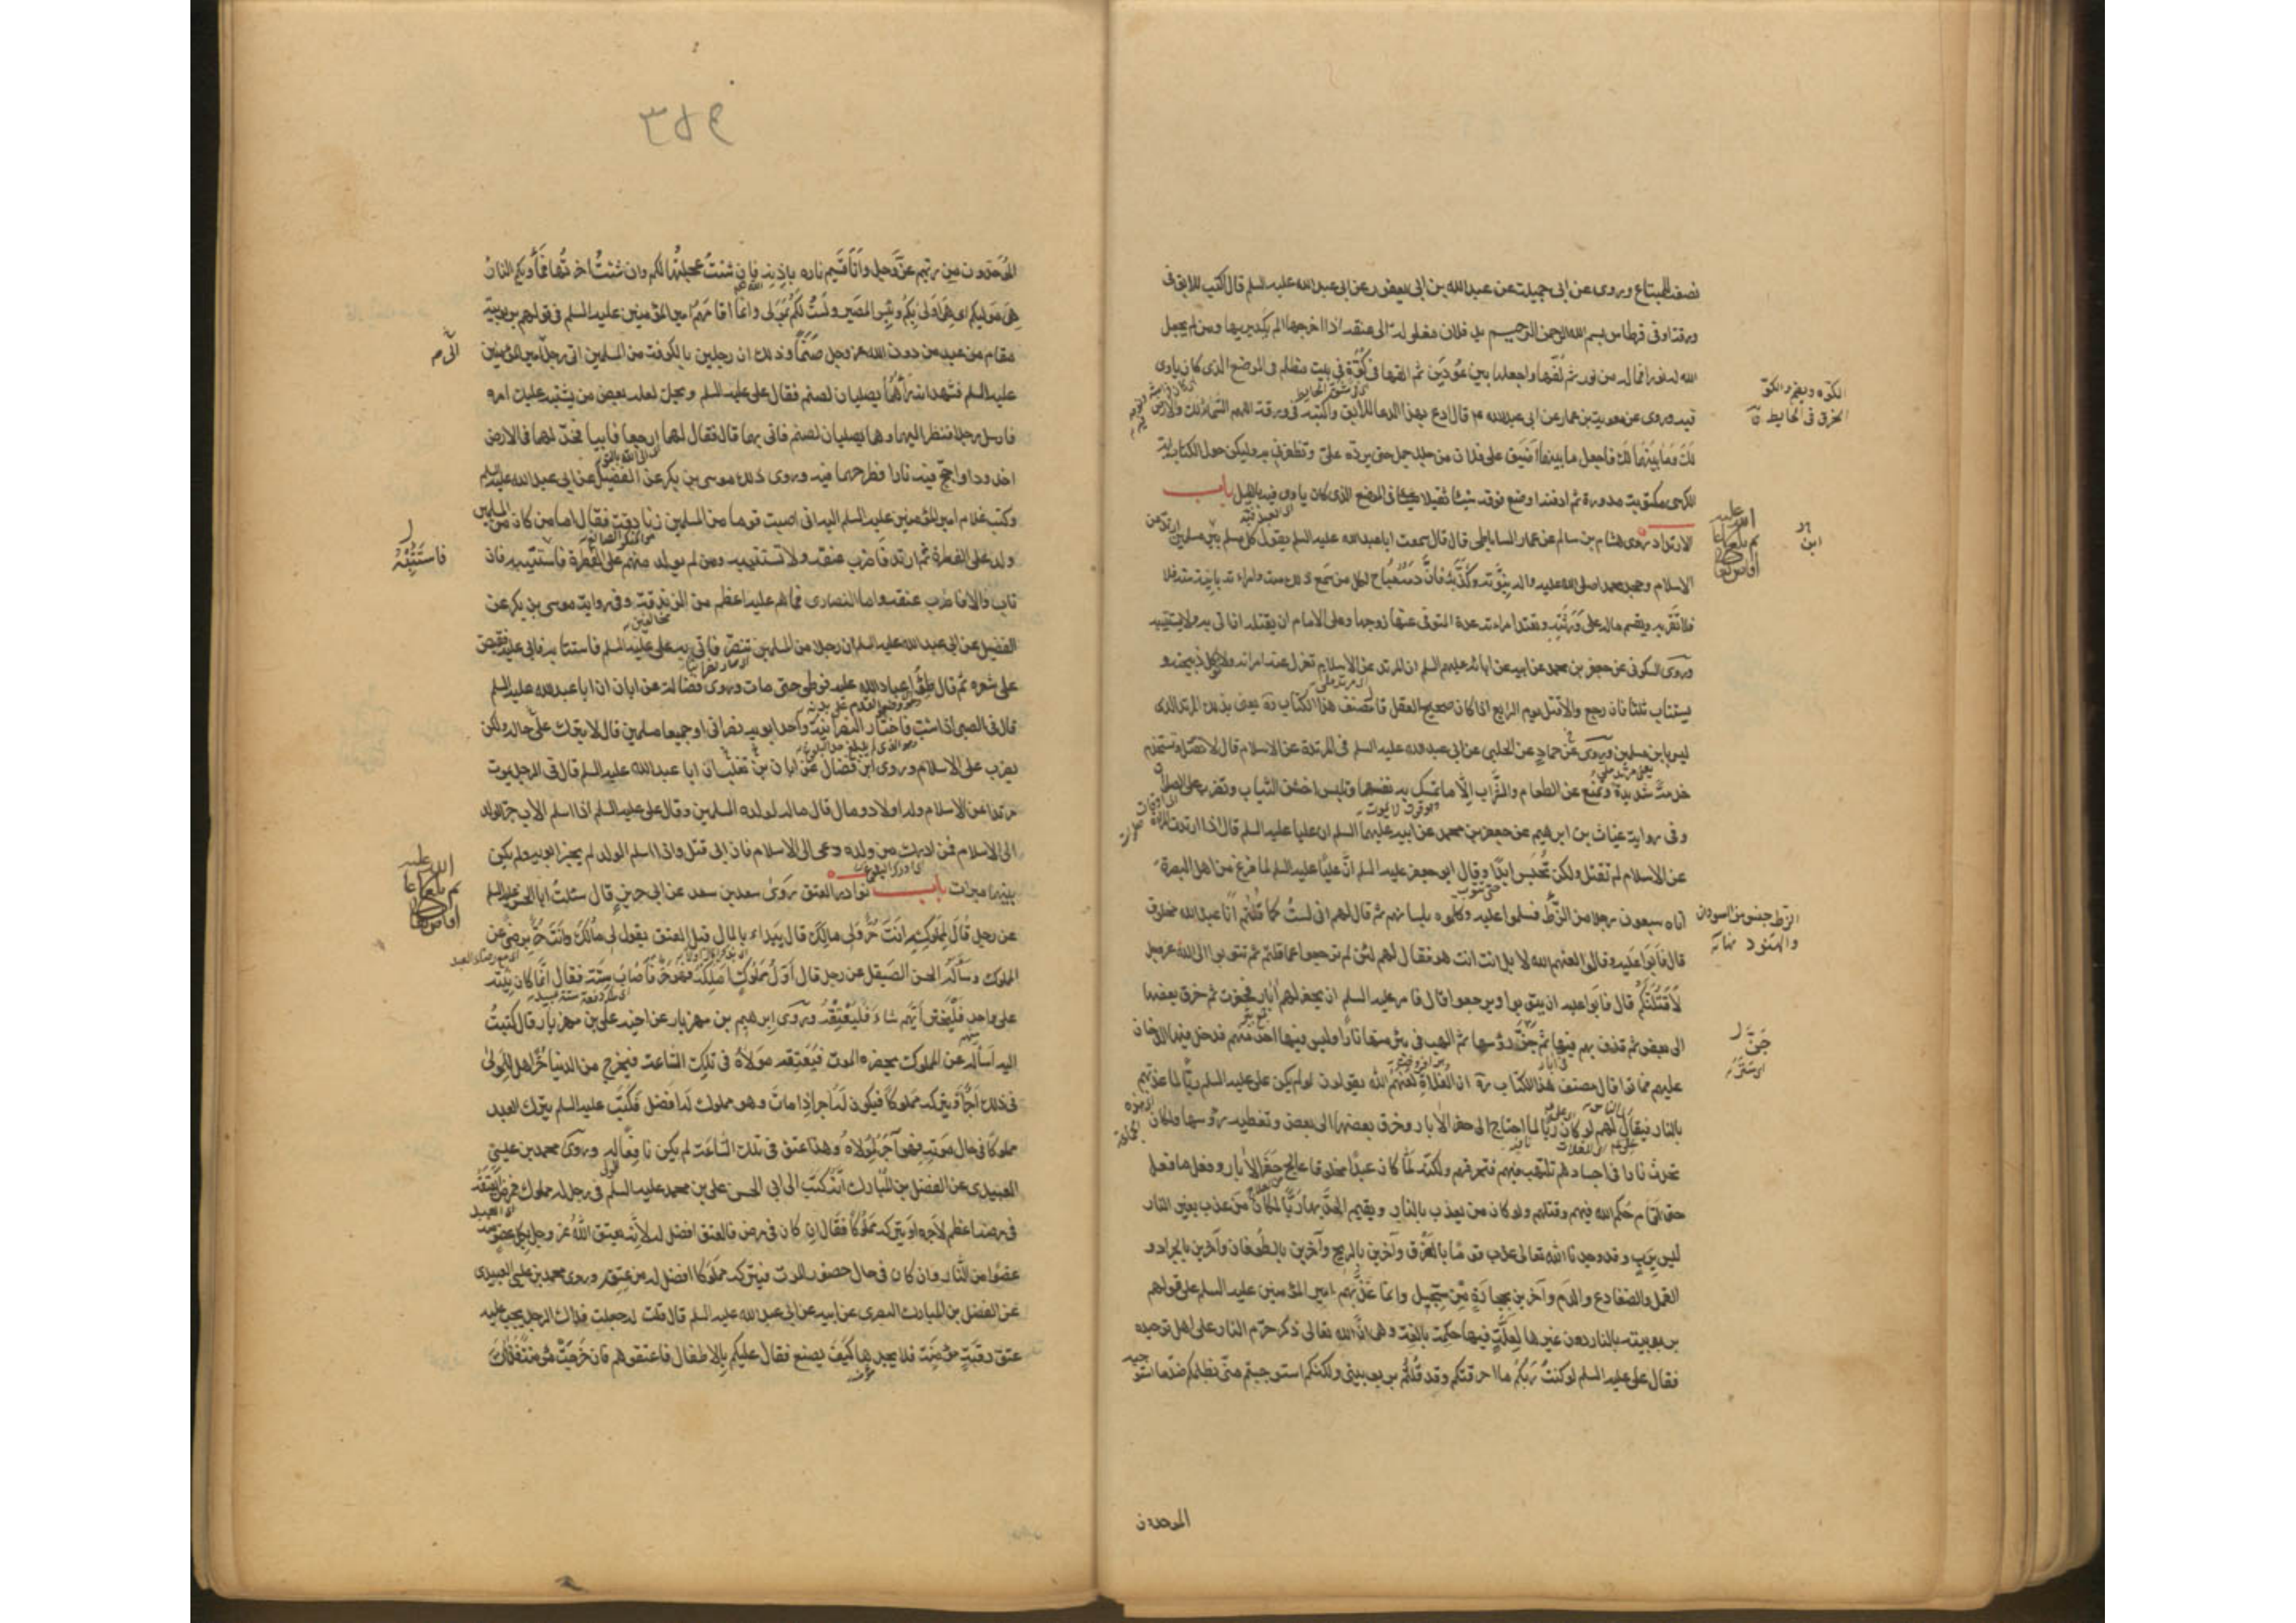 نصف المتاع وروى عن ابى جميلة عن عبدالله بن ابى يعفور عن ابى عبدالله عليه السلم قال اكتب للابق فى
ورقة او فى قرطاس بسم الله الرحمن الرحيم يد فلان مغلولة الى عنقه اذا اخرجها لم يكد يريها ومن لم يجعل
الله له نورا فما له من نور ثم لُفّها واجعلها بين عُودَين ثم القها فى كُوّة فى بيت مظلم فى الموضع الذى كان ياوى
فيه وروى عن معوية بن عمار عن ابى عبدالله ع قال ادع بهذا الدعا للابق واكتبه فى ورقة اللهم السماء لك والارض
لك وما بينهما لك فاجعل ما بينهما اضيق على فلان من جلد جمل حتى يرده على وتظفرنى به وليكن حول الكتاب اية
الكرسى مكتوبة مدورة ثم ادفنه وضع فوقه شيئا ثقيلا فى الموضع الذى كان ياوى فيه بالليل باب
الارتداد روى هشام بن سالم عن عمار الساباطى قال قال سمعت اباعبدالله عليه السلم يقول كل مسلم بين مسلمين ارتد عن
الاسلام وجحد محمدا صلى الله عليه واله نبوته وكذبه فان دمه مباح لكل من سمع ذلك منه وامراته باينة منه فلا
فلا تقربه ويقسم ماله على ورثته وتعتد امراته عدة المتوفى عنها زوجها وعلى الامام ان يقتله اذا اتى به ولا يستتيبه
وروى السكونى عن جعفر بن محمد عن ابيه عن ابائه عليهم السلم ان المرتد عن الاسلام تعزل عنه امراته ولا تؤكل ذبيحته و
يستتاب ثلثا فان رجع والا قتل يوم الرابع اذا كان صحيح العقل قال مصنف هذا الكتاب ره يعنى بذلك المرتد الذى
ليس بابن مسلمين وروى عن حماد عن الحلبى عن ابى عبدالله عليه السلم فى المرتدة عن الاسلام قال لا تقتل وتستخدم
خدمة شديدة وتمنع عن الطعام والشراب الا ما تمسك به نفسها وتلبس اخشن الثياب وتضرب على الصلوات
وفى رواية غياث بن ابرهيم عن جعفر بن محمد عن ابيه عليهما السلم ان عليا عليه السلم قال اذا ارتدت المراة
عن الاسلام لم تقتل ولكن تُحبس ابدًا وقال ابو جعفر عليه السلم انّ عليًّا عليه السلم لما فرغ من اهل البصرة
اتاه سبعون رجلا من الزُّط فسلموا عليه وكلموه بلسانهم ثم قال لهم انى لستُ كما قُلتُم انا عبدالله مخلوق
قال فابوا عليه وقالوا لعنهم الله لا بل انت انت هو فقال لهم لئن لم ترجعوا عما قلتم ثم تتوبوا الى الله عز وجل
لاقتلنكم قال فابوا عليه ان يتوبوا ويرجعوا قال فامر عليه السلم ان يحفر لهم آبار فحفرت ثم خرق بعضها
الى بعض ثم قذف بهم فيها ثم جنّ رؤسها ثم الهب فى بئر منها نارا وليس فيها احد منهم فدخل فيها الدخان
عليهم فماتوا قال مصنف هذا الكتاب ره ان الغلاة لعنهم الله يقولون لو لم يكن على عليه السلم ربًّا لما عذبهم
بالنار فيقال لهم لو كان ربّا لما احتاج الى حفر الابار وخرق بعضها الى بعض وتغطية رؤسها ولكان
تحدث نارا فى اجسادهم تلتهب فيهم فتحرقهم ولكنه لما كان عبدا مخلوقا عالج حفر الابار وفعل ما فعل
حتى اقام حكم الله فيهم وقتلهم ولو كان من يعذب بالنار ويقيم الحدّ بها ربًّا لكان من عذب بغير النار
ليس بربٍّ وقد وجدنا الله تعالى عذب قومًا بالغرق وآخرين بالريح وآخرين بالطوفان وآخرين بالجراد و
القمل والضفادع والدم وآخرين بحجارة من سجيل وانما عذبهم امير المؤمنين عليه السلم على قولهم
بربوبيته بالنار دون غيرها لعلّة فيها حكمة بالغة وهى ان الله تعالى ذكره حرّم النار على اهل توحيده
فقال على عليه السلم لو كنتُ ربّكم ما احرقتكم وقد قلتم بربوبيتى ولكنكم استوجبتم منّى بظلمكم ضدّ ما استوجبه
الموحدون
الكوّه ويضم والكوّ
الخرق فى الحايط ق
ابن
الزط جنس من السودان
والهنود نهاية
جَنَّ ل
اى ستر
٣٥٤
الموحدون من ربهم عزّ وجل وانا قسيم ناره باذنه فان شئتُ عجلتها لكم وان شئتُ اخرتها فمأويكم النار
هى موليكم اى هى اولى بكم وبئس المصير ولستُ لكم بمولى وانما اقامهم امير المؤمنين عليه السلم فى قولهم بربوبيته
مقام من عبد من دون الله عز وجل صنمًا وذلك ان رجلين بالكوفة من المسلمين اتى رجل امير المؤمنين
عليه السلم فشهد انه رآهما يصليان لصنم فقال على عليه السلم ويحك لعله بعض من يشتبه عليك امره
فارسل رجلا فنظر اليهما وهما يصليان لصنم فاتى بهما قال فقال لهما ارجعا فابيا فخدّ لهما فى الارض
اخدودا واجج فيه نارا فطرحهما فيه وروى ذلك موسى بن بكر عن الفضيل عن ابى عبدالله عليه السلم
وكتب غلام امير المؤمنين عليه السلم اليه انى اصبت قوما من المسلمين زنادقة فقال اما من كان من المسلمين
ولد على الفطرة ثم ارتد فاضرب عنقه ولا تستتيبه ومن لم يولد منهم على الفطرة فاستتيبه فان
تاب والا فاضرب عنقه واما النصارى فما هم عليه اعظم من الزندقة وفى رواية موسى بن بكر عن
الفضيل عن ابى عبدالله عليه السلم ان رجلا من المسلمين تنصّر فاتى به على عليه السلم فاستتابه فابى عليه فقبض
على شعره ثم قال طؤا عباد الله عليه فوطى حتى مات وروى فضالة عن ابان ان اباعبدالله عليه السلم
قال فى الصبى اذا شب فاختار النصرانية واحد ابويه نصرانى او جميعا مسلمين قال لا يترك على حاله ولكن
يضرب على الاسلام وروى ابن فضال عن ابان بن تغلب ان ابا عبدالله عليه السلم قال فى الرجل يموت
مرتدا عن الاسلام وله اولاد ومال قال ماله لولده المسلمين وقال على عليه السلم اذا اسلم الاب جرّ الولد
الى الاسلام فمن ادرك من ولده دعى الى الاسلام فان ابى قتل واذا اسلم الولد لم يجر ابويه ولم يكن
بينهما ميراث باب نوادر العتق روى سعد بن سعد عن ابى جرير قال سئلت ابا الحسن عليه السلم
عن رجل قال لمملوكه انت حُرّ ولى مالك قال يبداء بالمال قبل العتق يقول لى مالك وانت حُرّ برضى من
المملوك وسأله الحسن الصيقل عن رجل قال اوّل مملوك املكه فهو حرّ فاصاب ستّة فقال انما كان نيته
على واحد فليختر ايّهم شاء فليعتقه وروى ابرهيم بن مهزيار عن اخيه على بن مهزيار قال كتبتُ
اليه اسأله عن المملوك يحضره الموت فيعتقه مولاه فى تلك الساعة فيخرج من الدنيا حُرًّا هل للمولى
فى ذلك اجر او يتركه مملوكا فيكون له اجر اذا مات وهو مملوك له افضل فكتب عليه السلم يترك العبد
مملوكا فى حال موته فهو اجر لمولاه وهذا عتق فى تلك الساعة لم يكن نافعا له وروى محمد بن عيسى
العبيدى عن الفضل بن المبارك انه كتب الى ابى الحسن على بن محمد عليه السلم فى رجل له مملوك فمرض ايعتقه
فى مرضه اعظم لاجره او يتركه مملوكا فقال ان كان فى مرض فالعتق افضل له لانه يعتق الله عز وجل بكل عضو منه
عضوا من النار وان كان فى حال حضور الموت فيتركه مملوكا افضل له من عتقه وروى محمد بن عيسى العبيدى
عن الفضل بن المبارك البصرى عن ابيه عن ابى عبدالله عليه السلم قال قلت له جعلت فداك الرجل يجب عليه
عتق رقبة مؤمنة فلا يجدها كيف يصنع فقال عليكم بالاطفال فاعتقوهم فان خرجت مؤمنة فذاك
فاستتبه